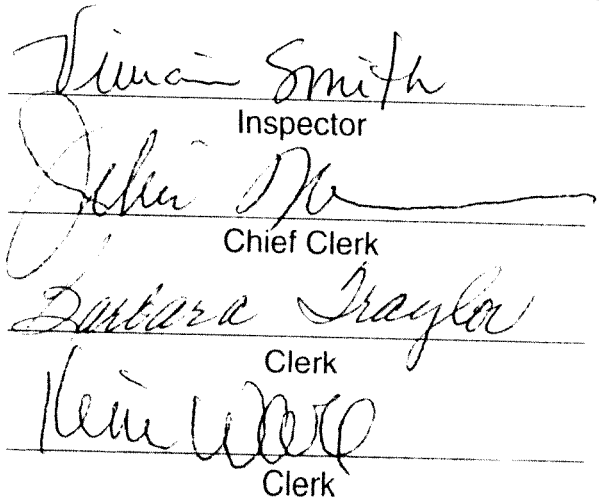 Vivian Smith
Inspector
Chief Clerk
Barbara Traylor
Clerk
Ware
Clerk